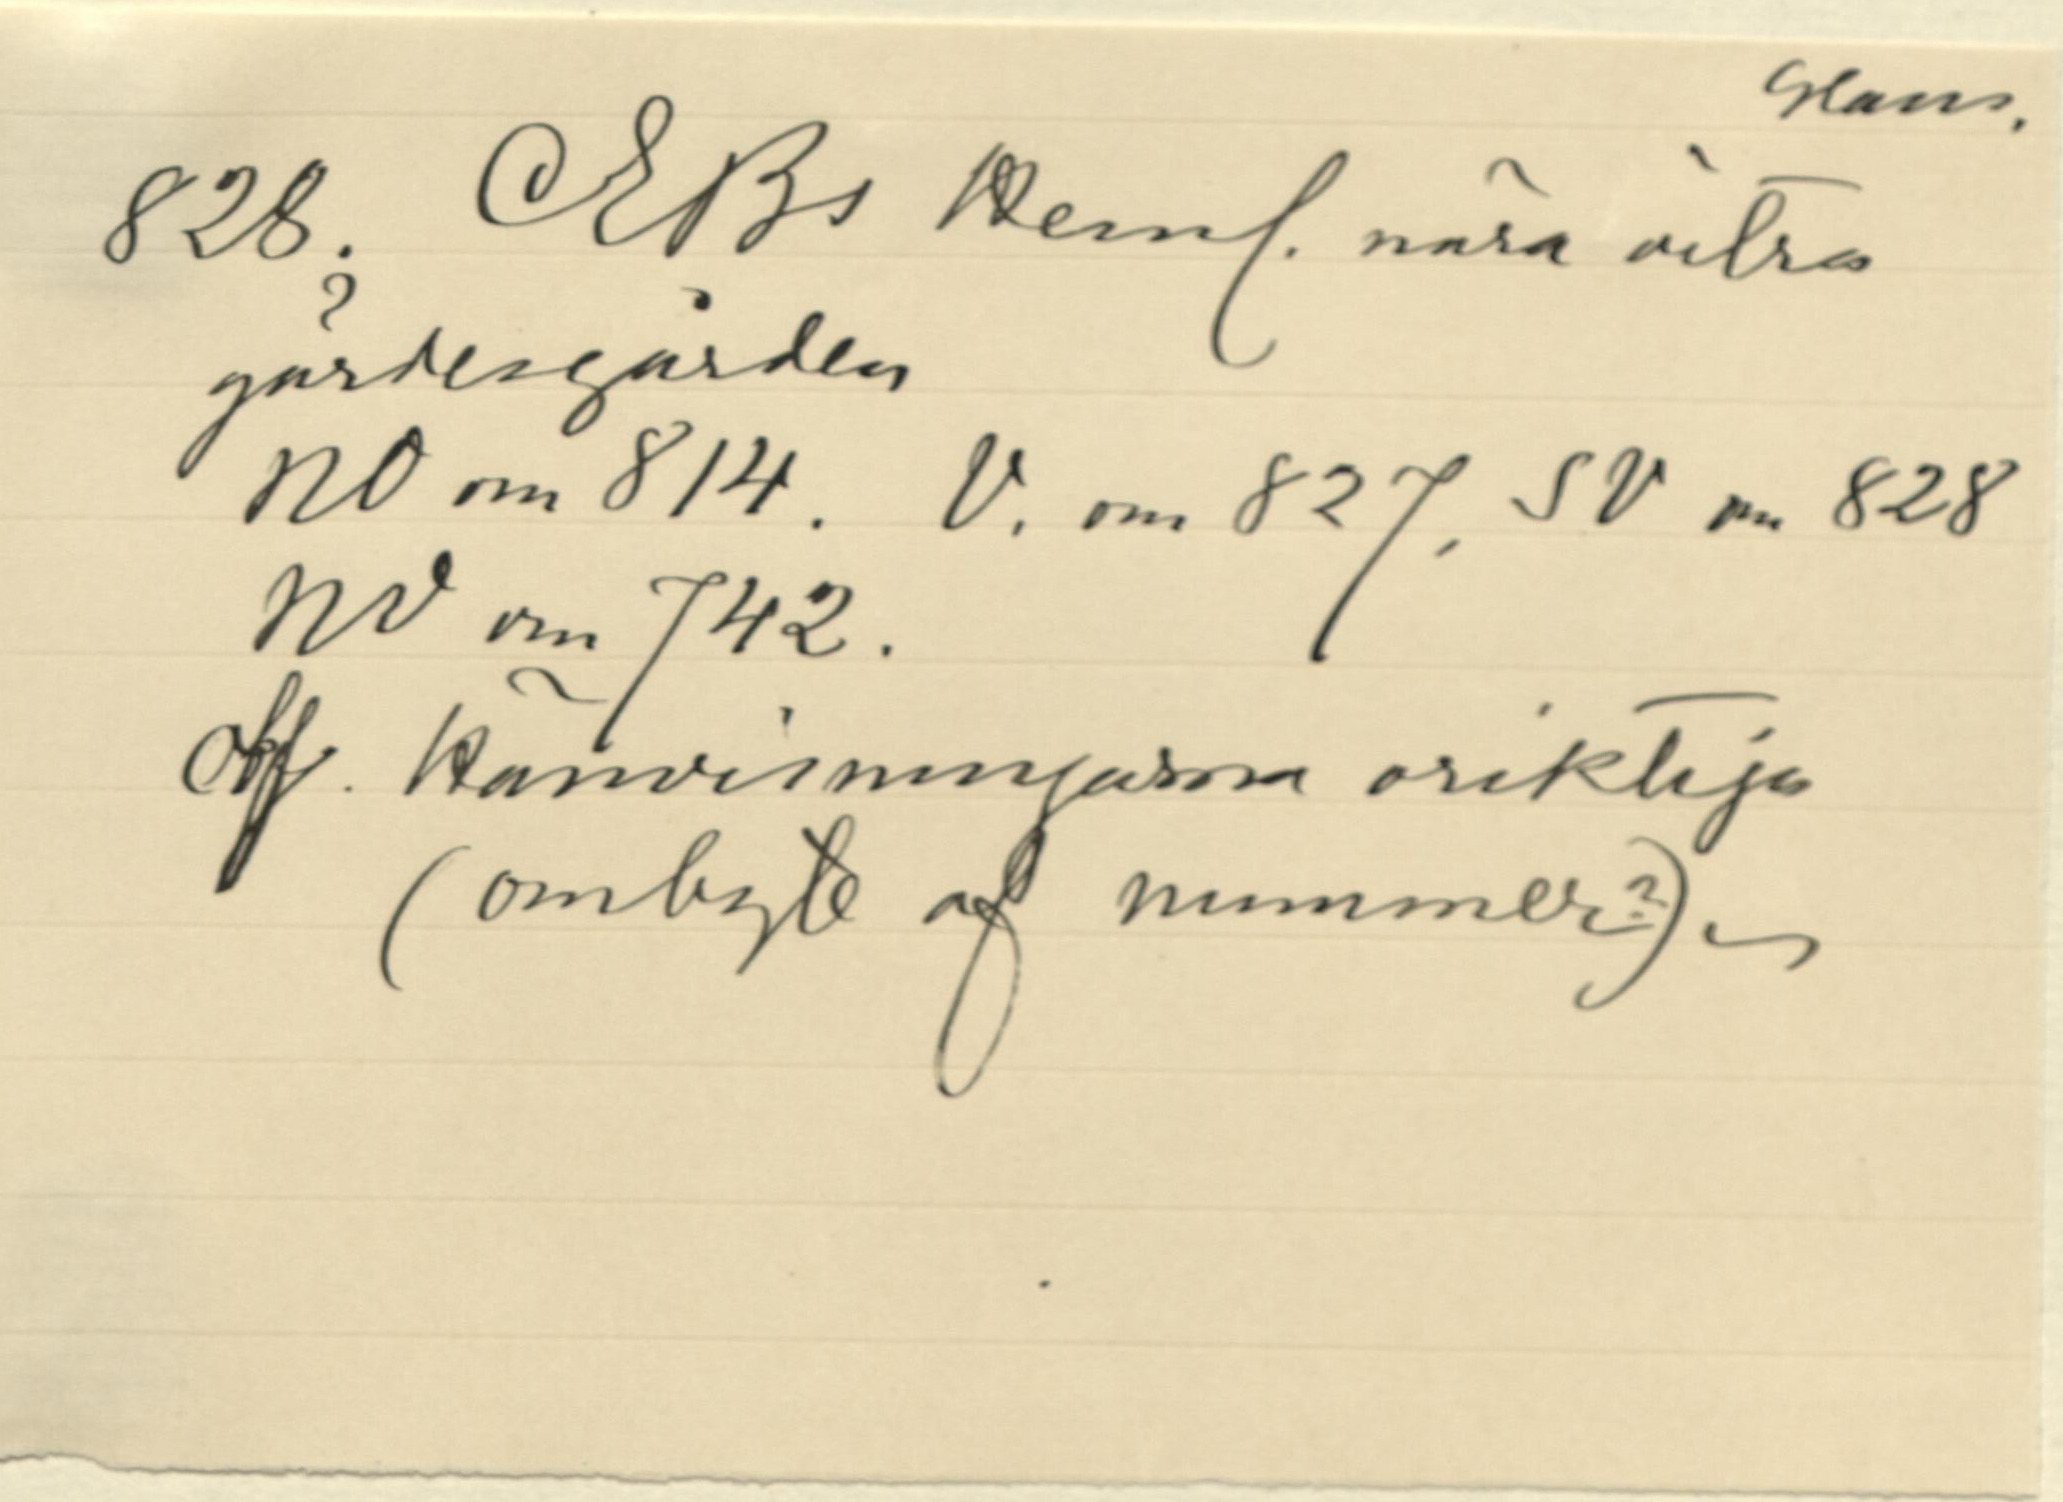 Hans.
828. EBs Heml. nära östra
gärdesgården
NO om 814. V. om 827, SV om 828
NV om 742.
Hänvisningarna oriktiga
(ombyte af nummer?)